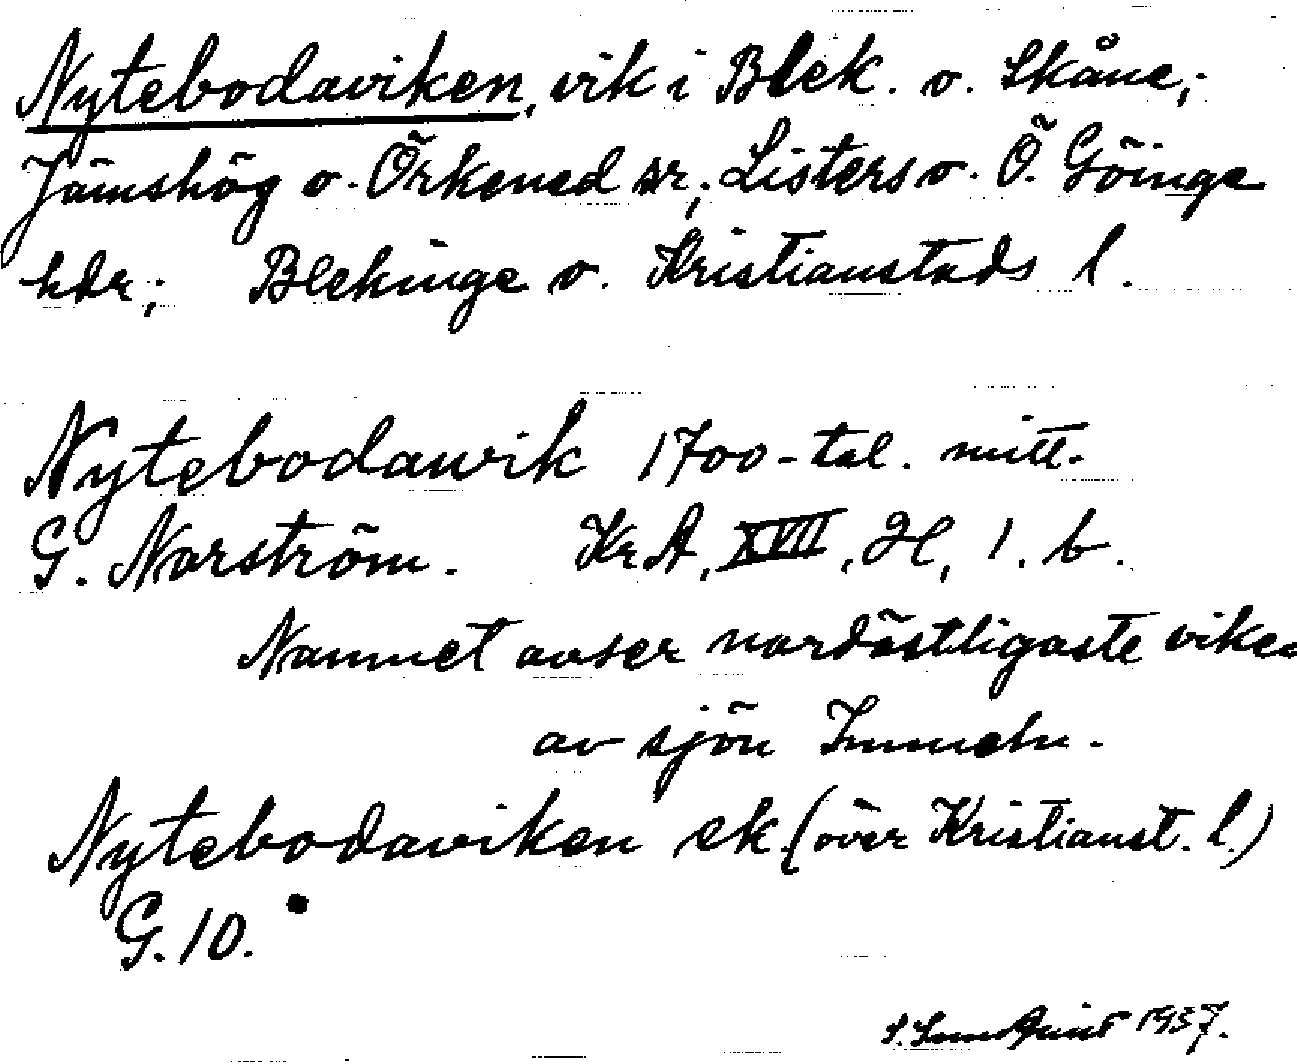 Nytebodaviken, vik i Blek. o. Skåne;
Jämshög o. Örkened sr; Listers o. Ö. Göinge
hdr; Blekinge o. Kristianstads l.
Nytebodawik 1700-tal. mitt.
G. Norström. Kr.A, XVII, H, 1. b.
Namnet avser nordöstligaste viken
av sjön Immeln.
Nytebodaviken ek (över Kristianst. l.)
G. 10.
1937.